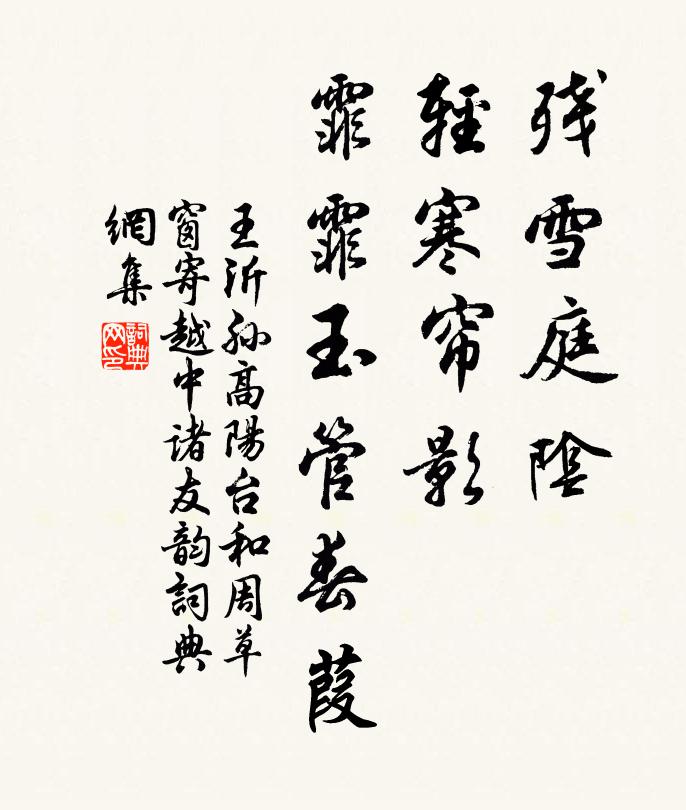 残雪庭陰
輕寒帘影
霏霏玉管春葭
王沂孙高陽台和周草
窗寄越中诸友韵詞典
網集
詞典网印